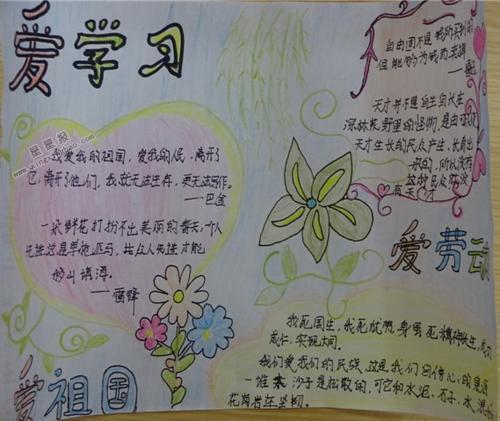 爱学习
我爱我的祖国，爱我的人民，离开了
它，离开了他们，我就无法生存，更无法写作。
——巴金
一朵鲜花打扮不出美丽的春天，个人
先进总是单枪匹马，众人先进才能
移山填海。
——雷锋
爱祖国
自由固不是
但能够为
天才并不是自生自长在
深林荒野里的怪物，是由
天才生长的民众产生，长育出
来的，所以没有
这种民众就没
有天才
爱劳动
我死国生，我死犹荣，身虽死精神长生，
成仁，实现大同。
我们爱我们的民族，这是我们自信心的泉源
一堆
沙子是松散的，可它和水泥、石子、水
花岗岩还坚韧
星星报